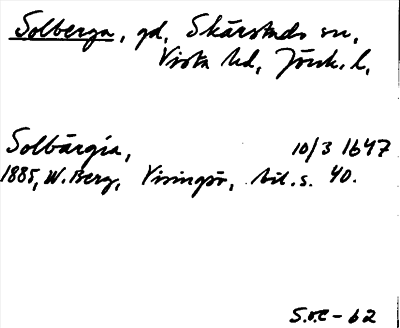 Solberga, gd, Skärstads sn,
Vista hd, Jönk. l,
Solbärgia, 10/3 1647
1885, W. Berg, Visingsö, bil. s. 40.
S.v.E - 62